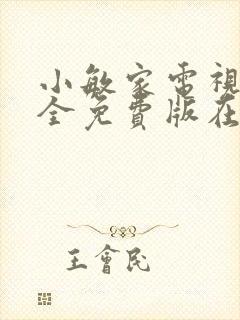 小敏家電視
全免費版在
王會民